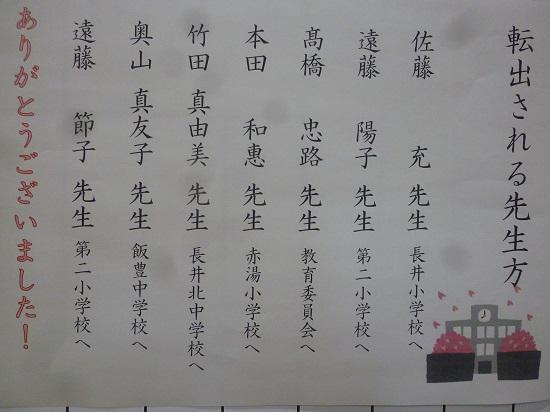 転出される先生方
佐藤 充 先生 長井小学校へ
遠藤 陽子 先生 第二小学校へ
髙橋 忠路 先生 教育委員会へ
本田 和惠 先生 赤湯小学校へ
竹田 真由美 先生 長井北中学校へ
奥山 真友子 先生 飯豊中学校へ
遠藤 節子 先生 第二小学校へ
ありがとうございました!